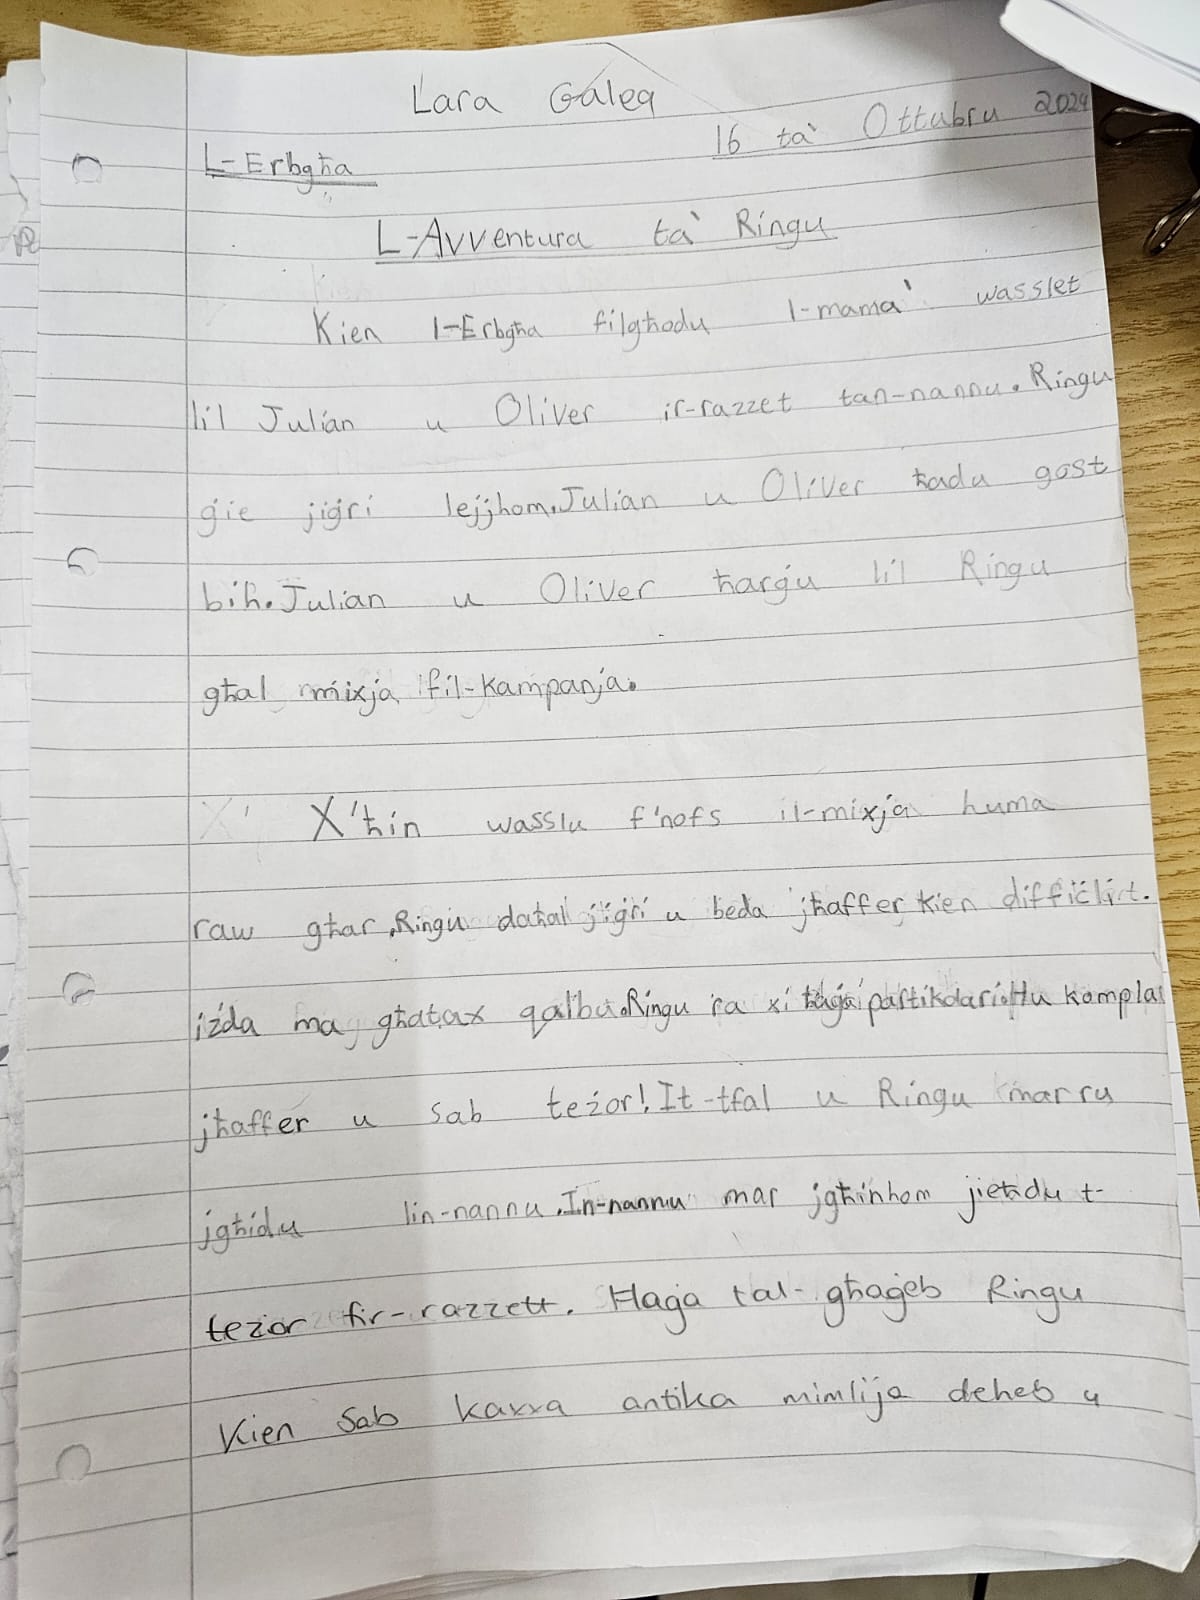 Lara Galea
16 ta' Ottubru 2024
L-Erbgħa
L-Avventura ta' Ringu
Kien l-Erbgħa filgħodu l-mama' wasslet
lil Julian u Oliver ir-razzet tan-nannu. Ringu
ġie jiġri lejjhom. Julian u Oliver ħadu gost
bih. Julian u Oliver ħarġu lil Ringu
għal mixja fil-kampanja.
X'ħin wasslu f'nofs il-mixja huma
raw għar, Ringu daħal jiġri u beda jħaffer kien
iżda ma għatax qalbu. Ringu ra xi ħaġa Hu kompla
jħaffer u sab teżor! It-tfal u Ringu marru
jgħidu lin-nannu. In-nannu mar jgħinhom jieħdu t-
teżor fir-razzett. Ħaġa tal-għaġeb Ringu
Kien sab kaxxa antika mimlija deheb u